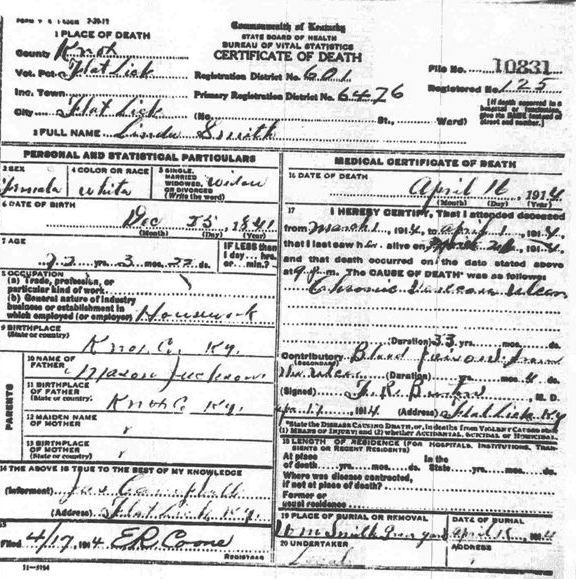 Commonwealth of Kentucky
STATE BOARD OF HEALTH
BUREAU OF VITAL STATISTICS
CERTIFICATE OF DEATH
1 PLACE OF DEATH
County Knox
Vot. Pct. Flat Lick
Inc. Town
City Flat Lick
Registration District No. 601
Primary Registration District No. 6476
(No. St., Ward)
File No. 10831
Registered No. 125
[If death occurred in a hospital or institution, give its NAME instead of street and number.]
2 FULL NAME Linda Smith
PERSONAL AND STATISTICAL PARTICULARS
3 SEX
female
4 COLOR OR RACE
white
5 SINGLE, MARRIED, WIDOWED, OR DIVORCED
(Write the word)
Widow
6 DATE OF BIRTH
Dec 25 1841
(Month) (Day) (Year)
7 AGE
3 mos. 22 ds.
IF LESS than 1 day... hrs. or... min.?
8 OCCUPATION
(a) Trade, profession, or particular kind of work
(b) General nature of industry business or establishment in which employed (or employer)
Housework
9 BIRTHPLACE
(State or country)
Knox Co. Ky.
PARENTS
10 NAME OF FATHER
Jackson
11 BIRTHPLACE OF FATHER
(State or country)
Knox Co. Ky.
12 MAIDEN NAME OF MOTHER
13 BIRTHPLACE OF MOTHER
(State or country)
14 THE ABOVE IS TRUE TO THE BEST OF MY KNOWLEDGE
(Informant) Jas Campbell
(Address) Flat Lick Ky.
15
Filed 4/17 1914 ER Coone
REGISTRAR
11-3184
MEDICAL CERTIFICATE OF DEATH
16 DATE OF DEATH
April 16, 1914
(Month) (Day) (Year)
17 I HEREBY CERTIFY, That I attended deceased
from March 1, 1914, to April 1, 1914,
that I last saw her alive on 1914,
and that death occurred on the date stated above
at 9 P.m. The CAUSE OF DEATH* was as follows
Chronic
(Duration) 33 yrs. mos. ds.
Contributory Blood
(SECONDARY)
(Duration) yrs. mos. ds.
(Signed) M. D.
17, 1914 (Address) Flat Lick Ky
*State the DISEASE CAUSING DEATH, or, in deaths from VIOLENT CAUSES state (1) MEANS OF INJURY; and (2) whether ACCIDENTAL, SUICIDAL or HOMICIDAL.
18 LENGTH OF RESIDENCE (FOR HOSPITALS, INSTITUTIONS, TRANSIENTS OR RECENT RESIDENTS)
At place of death yrs. mos. ds. In the State yrs. mos. ds.
Where was disease contracted, if not at place of death?
Former or usual residence
19 PLACE OF BURIAL OR REMOVAL
Smith Grave yard
DATE OF BURIAL
April 1914
20 UNDERTAKER
ADDRESS